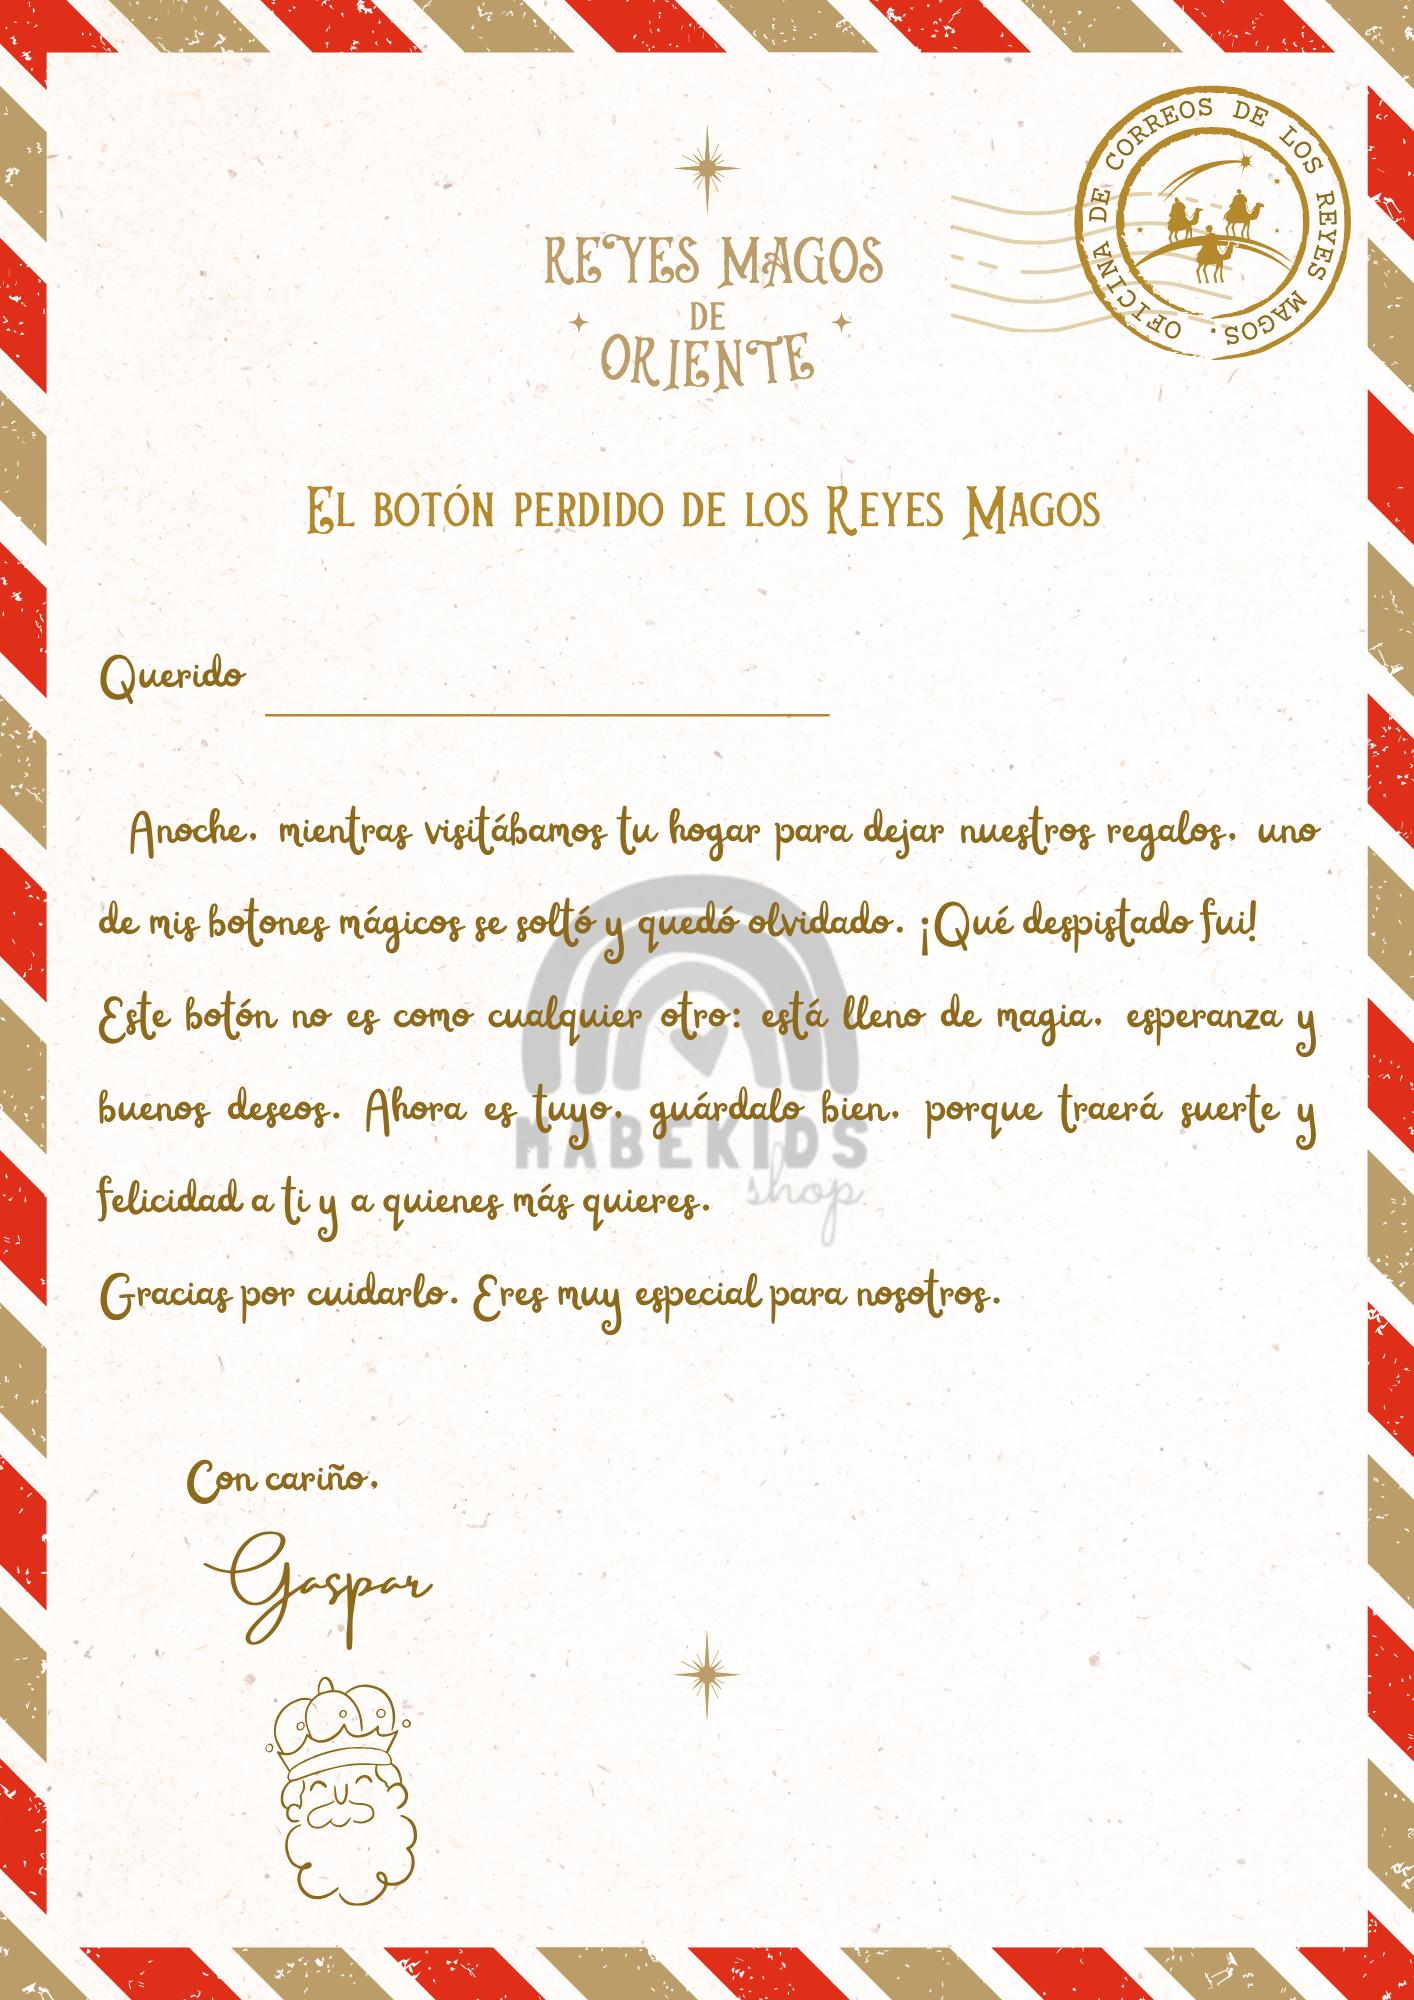 OFICINA DE CORREOS DE LOS REYES MAGOS.
REYES MAGOS
DE
ORIENTE
El botón perdido de los Reyes Magos
Querido
Anoche, mientras visitábamos tu hogar para dejar nuestros regalos, uno
de mis botones mágicos se soltó y quedó olvidado. ¡Qué despistado fui!
Este botón no es como cualquier otro: está lleno de magia, esperanza y
buenos deseos. Ahora es tuyo, guárdalo bien, porque traerá suerte y
felicidad a ti y a quienes más quieres.
Gracias por cuidarlo. Eres muy especial para nosotros.
MABEKIDS
shop
Con cariño,
Gaspar